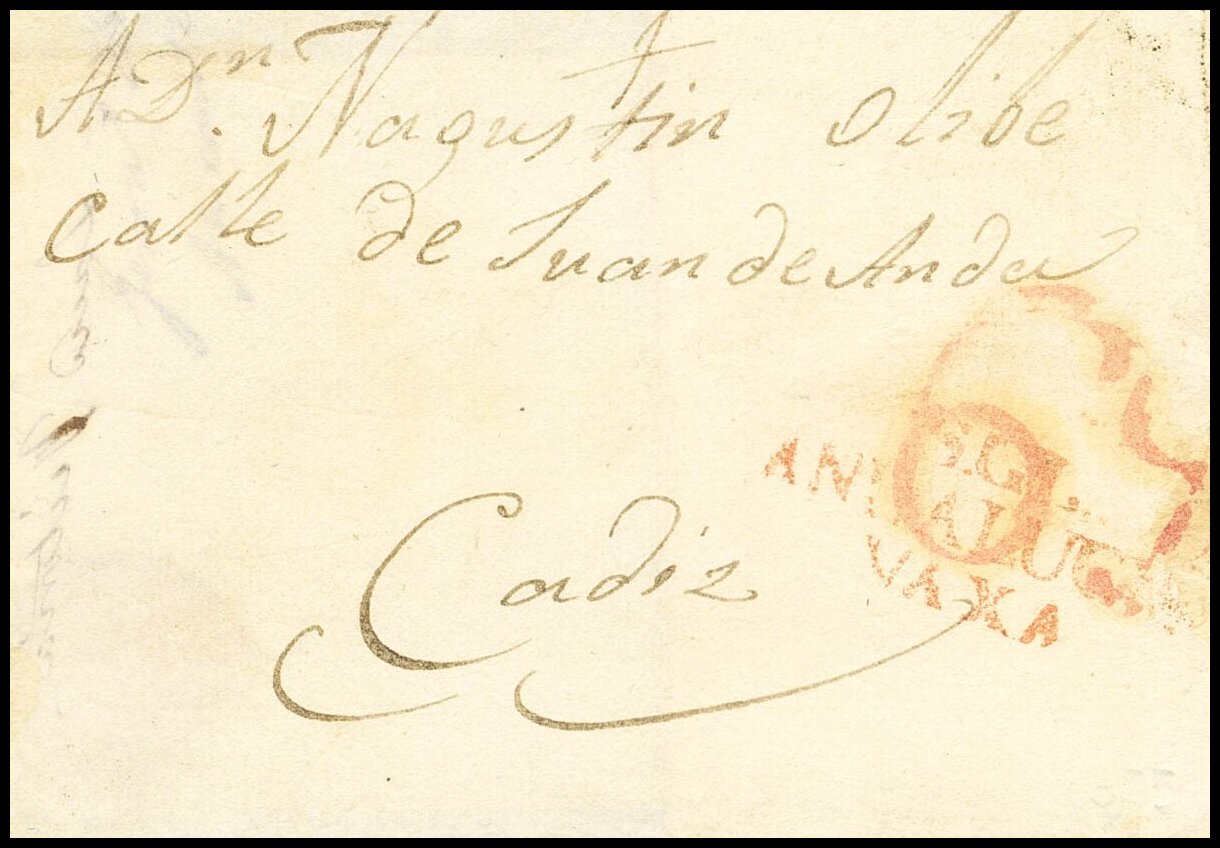 A Dn. Nagustin Olibe
Calle de Juan de Anda
Cadiz
ANDALUCIA
VAXA